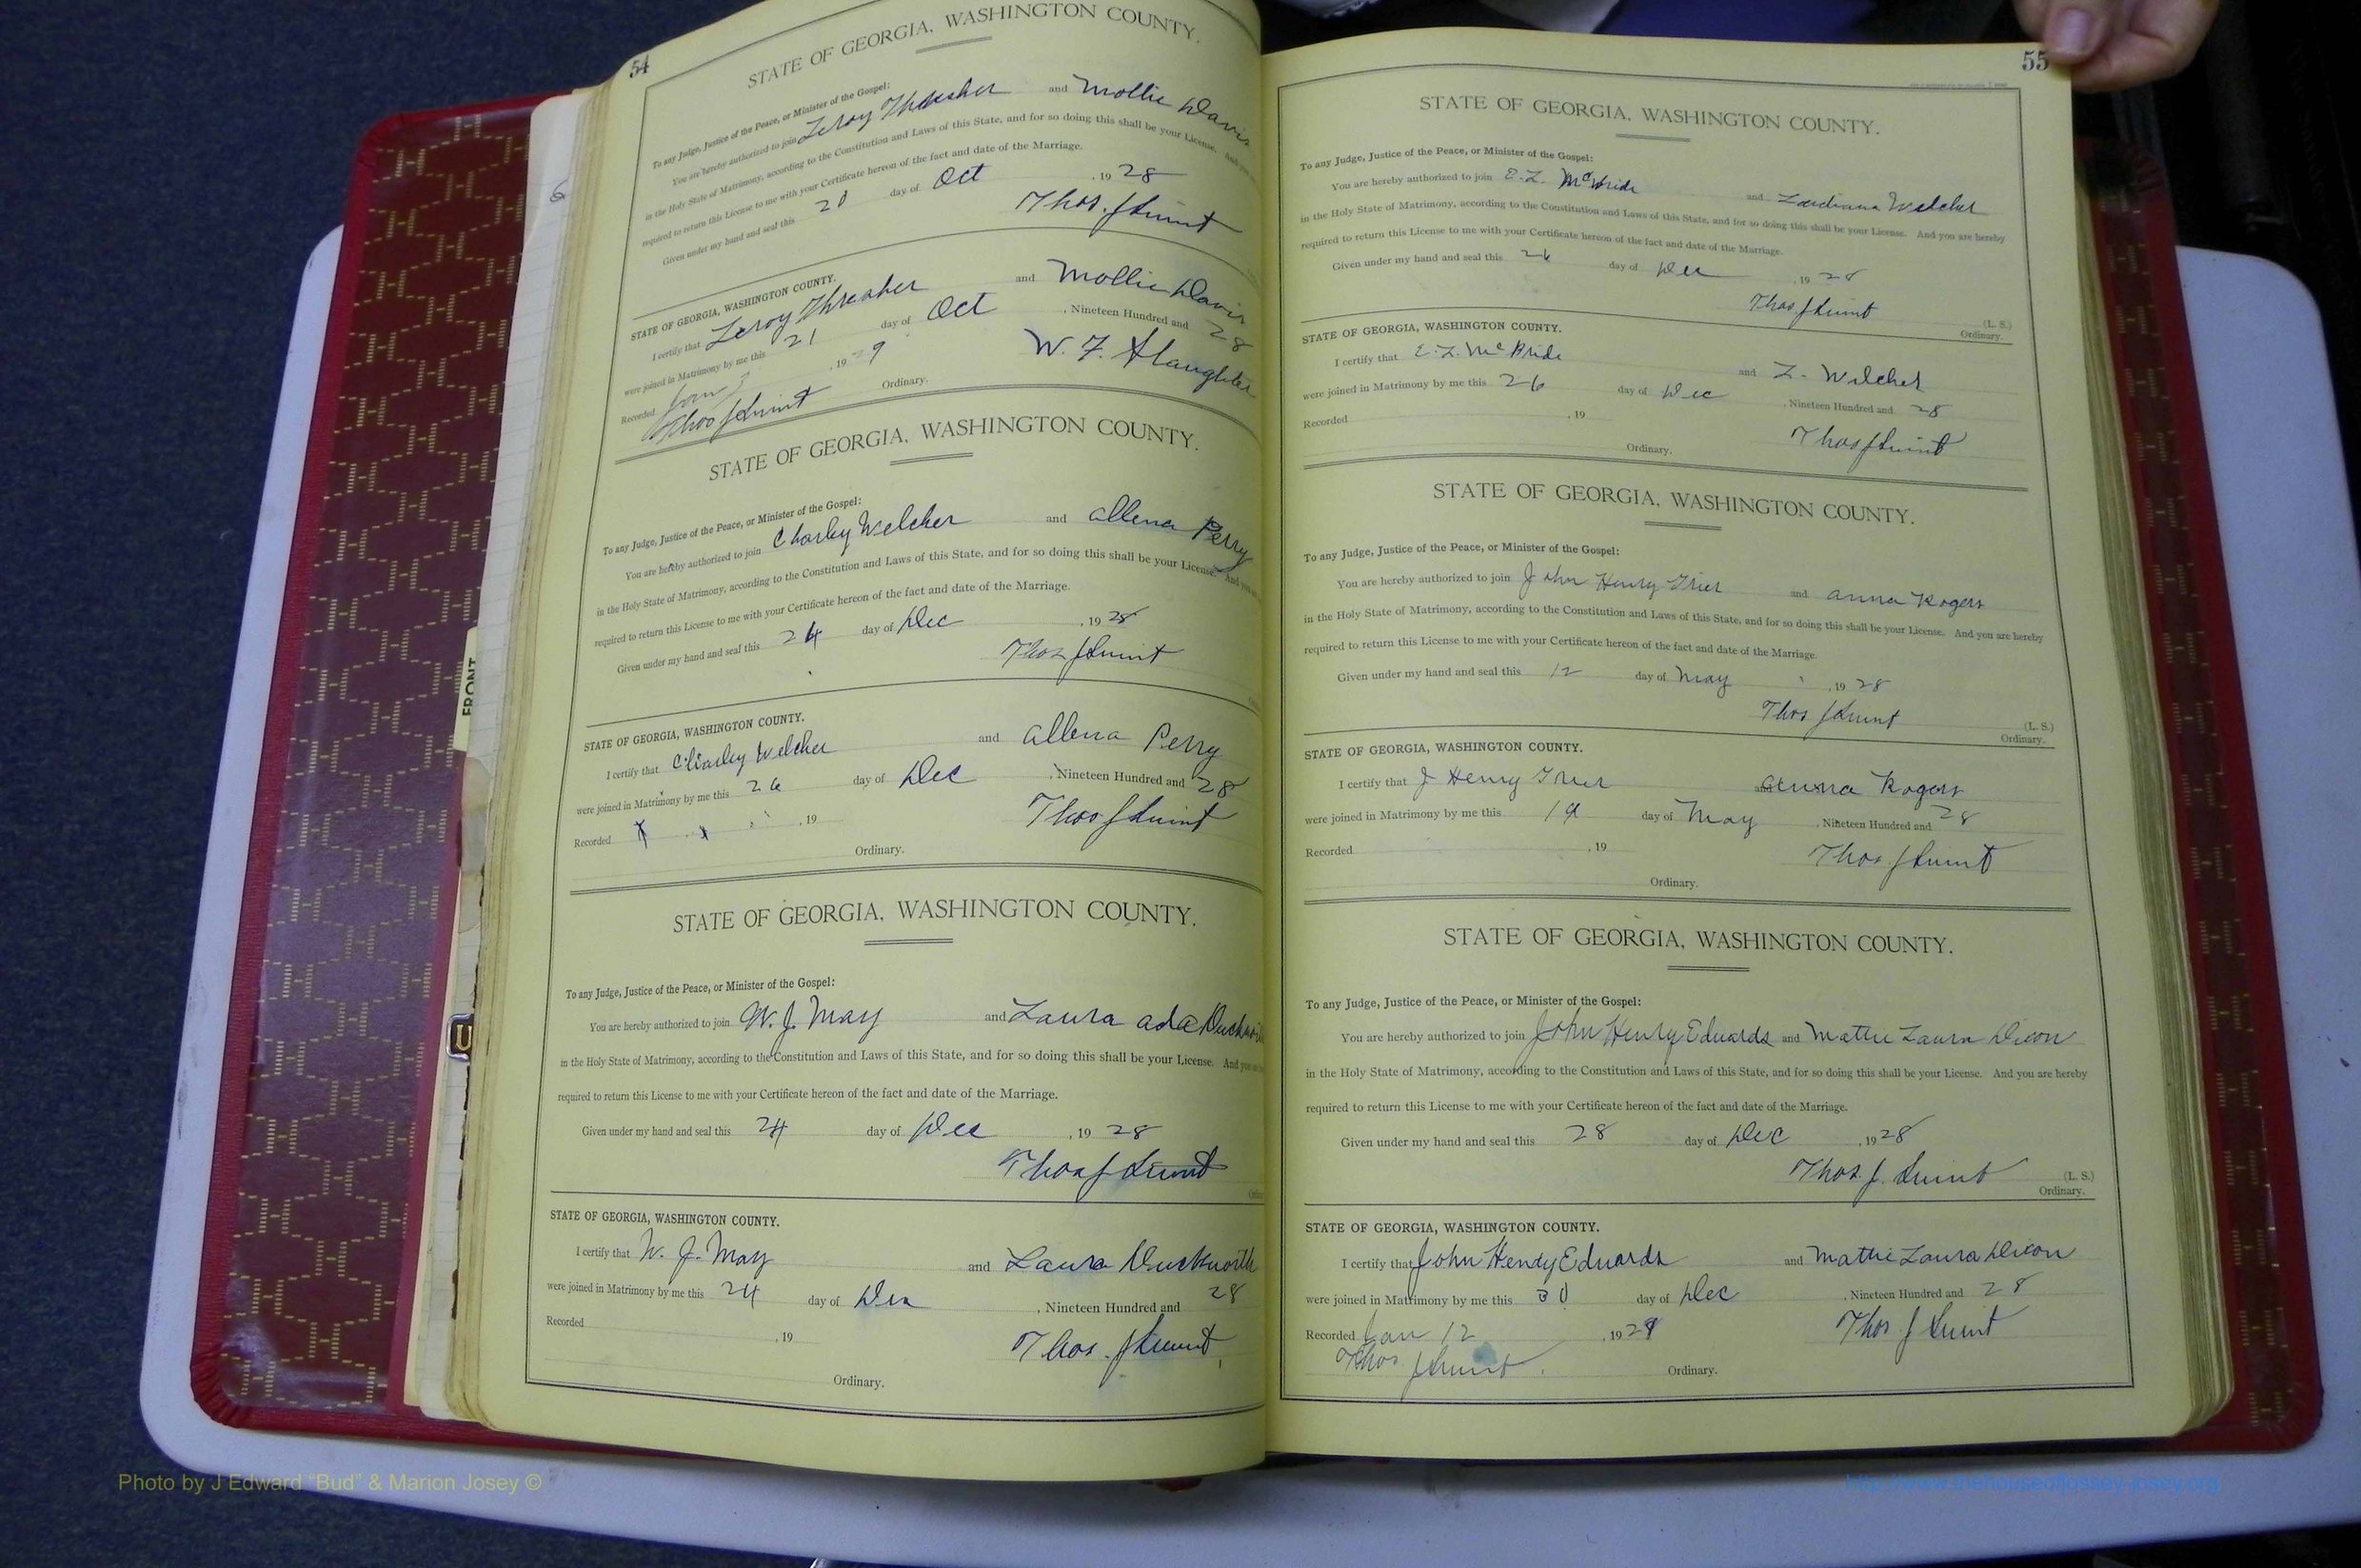 54
STATE OF GEORGIA, WASHINGTON COUNTY.
To any Judge, Justice of the Peace, or Minister of the Gospel:
You are hereby authorized to join Leroy Thrasher and Mollie Davis
in the Holy State of Matrimony, according to the Constitution and Laws of this State, and for so doing this shall be your License. And you
required to return this License to me with your Certificate hereon of the fact and date of the Marriage.
Given under my hand and seal this 20 day of Oct , 19 28
Thos. J
STATE OF GEORGIA, WASHINGTON COUNTY.
I certify that Leroy Thrasher and Mollie Davis
were joined in Matrimony by me this 21 day of Oct , Nineteen Hundred and 28
Recorded Jan , 19 29 W. F. Slaughter
Thos J Ordinary.
STATE OF GEORGIA, WASHINGTON COUNTY.
To any Judge, Justice of the Peace, or Minister of the Gospel:
You are hereby authorized to join Charley Welcher and Allena Perry
in the Holy State of Matrimony, according to the Constitution and Laws of this State, and for so doing this shall be your License. And you
required to return this License to me with your Certificate hereon of the fact and date of the Marriage.
Given under my hand and seal this 24 day of Dec , 19 28
Thos J
STATE OF GEORGIA, WASHINGTON COUNTY.
I certify that Charley Welcher and Allena Perry
were joined in Matrimony by me this 26 day of Dec , Nineteen Hundred and 28
Recorded , 19 Thos J
Ordinary.
STATE OF GEORGIA, WASHINGTON COUNTY.
To any Judge, Justice of the Peace, or Minister of the Gospel:
You are hereby authorized to join W. J. May and Laura ada Duckworth
in the Holy State of Matrimony, according to the Constitution and Laws of this State, and for so doing this shall be your License. And you
required to return this License to me with your Certificate hereon of the fact and date of the Marriage.
Given under my hand and seal this 24 day of Dec , 19 28
Thos J
STATE OF GEORGIA, WASHINGTON COUNTY.
I certify that W. J. May and Laura Duckworth
were joined in Matrimony by me this 24 day of Dec , Nineteen Hundred and 28
Recorded , 19 Thos. J
Ordinary.
55
STATE OF GEORGIA, WASHINGTON COUNTY.
To any Judge, Justice of the Peace, or Minister of the Gospel:
You are hereby authorized to join E. L. McBride and Welcher
in the Holy State of Matrimony, according to the Constitution and Laws of this State, and for so doing this shall be your License. And you are hereby
required to return this License to me with your Certificate hereon of the fact and date of the Marriage.
Given under my hand and seal this 26 day of Dec , 19 28
Thos J (L. S.)
Ordinary.
STATE OF GEORGIA, WASHINGTON COUNTY.
I certify that E. L. McBride and L. Welcher
were joined in Matrimony by me this 26 day of Dec , Nineteen Hundred and 28
Recorded , 19 Thos J
Ordinary.
STATE OF GEORGIA, WASHINGTON COUNTY.
To any Judge, Justice of the Peace, or Minister of the Gospel:
You are hereby authorized to join John Henry Trier and anna Rogers
in the Holy State of Matrimony, according to the Constitution and Laws of this State, and for so doing this shall be your License. And you are hereby
required to return this License to me with your Certificate hereon of the fact and date of the Marriage.
Given under my hand and seal this 12 day of May , 19 28
Thos J (L. S.)
Ordinary.
STATE OF GEORGIA, WASHINGTON COUNTY.
I certify that J Henry Trier and anna Rogers
were joined in Matrimony by me this 19 day of May , Nineteen Hundred and 28
Recorded , 19 Thos. J
Ordinary.
STATE OF GEORGIA, WASHINGTON COUNTY.
To any Judge, Justice of the Peace, or Minister of the Gospel:
You are hereby authorized to join John Henry Edwards and Mattie Laura Dixon
in the Holy State of Matrimony, according to the Constitution and Laws of this State, and for so doing this shall be your License. And you are hereby
required to return this License to me with your Certificate hereon of the fact and date of the Marriage.
Given under my hand and seal this 28 day of Dec , 19 28
Thos. J. (L. S.)
Ordinary.
STATE OF GEORGIA, WASHINGTON COUNTY.
I certify that John Henry Edwards and Mattie Laura Dixon
were joined in Matrimony by me this 30 day of Dec , Nineteen Hundred and 28
Recorded Jan 12 , 19 29 Thos J
Thos. J Ordinary.
FRONT
U
Photo by J Edward "Bud" & Marion Josey ©
http://www.thehouseofjossey-josey.org